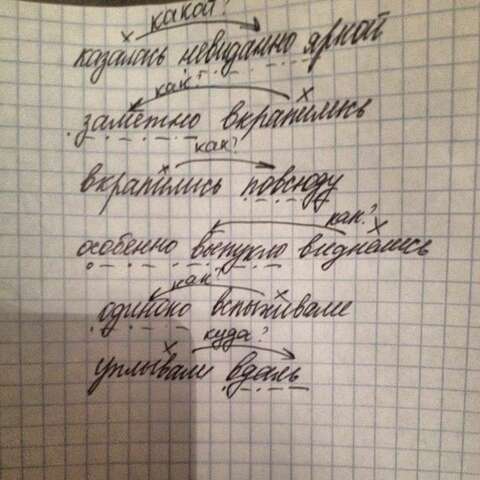 какой?
казалась невиданно яркой
как?
заметно вкрапились
как?
вкрапились повсюду
как?
особенно выпукло виднелись
как?
одиноко вспыхивали
куда?
уплывали вдаль